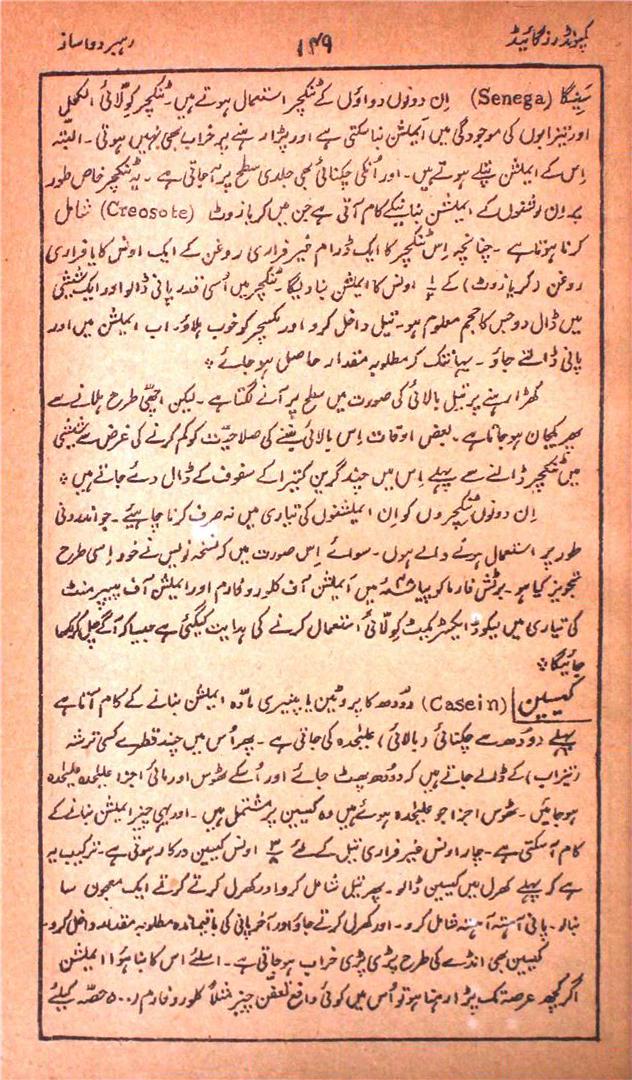 کمپونڈرز گائیڈ ۱۴۹ رہبر دواساز
سَینیگا (Senega) اِن دونوں دواؤں کے ٹنکچر استعمال ہوتے ہیں۔ ٹنکچر کولائی الکحل
اور تیزابوں کی موجودگی میں ایملشن بنا سکتی ہے اور پڑا رہنے پر خراب بھی نہیں ہوتی۔ البتہ
اِس کے ایملشن پتلے ہوتے ہیں۔ اور اُنکی چکنائی بھی جلدی سطح پر آجاتی ہے۔ یہ ٹنکچر خاص طور
پر اِن نسخوں کے ایملشن بنانیکے کام آتی ہے جن میں کریازوٹ (Creosote) شامل
کرنا ہوتا ہے۔ چنانچہ اِس ٹنکچر کا ایک ڈرام غیر فراری روغن کے ایک اونس کا یا فراری
روغن (کریازوٹ) کے ½ اونس کا ایملشن بنا دیگا۔ ٹنکچر میں اُسی قدر پانی ڈالو اور ایک شیشی
میں ڈال دو جس کا حجم معلوم ہو۔ تیل داخل کرو اور مکسچر کو خوب ہلاؤ۔ اب ایملشن میں اور
پانی ڈالتے جاؤ۔ یہانتک کہ مطلوبہ مقدار حاصل ہو جائے ٭
کھڑا رہنے پر تیل بالائی کی صورت میں سطح پر آنے لگتا ہے۔ لیکن اچھی طرح ہلانے سے
پھر یکجان ہو جاتا ہے۔ بعض اوقات اِس بالائی بننے کی صلاحیت کو کم کرنے کی غرض سے شیشی
میں ٹنکچر ڈالنے سے پہلے اِس میں چند گرین کتیرا کے سفوف کے ڈال دئے جاتے ہیں ٭
اِن دونوں ٹنکچروں کو اِن ایملشنوں کی تیاری میں نہ صرف کرنا چاہیئے۔ جو اندرونی
طور پر استعمال ہونے والے ہوں۔ سوائے اِس صورت میں کہ نسخہ نویس نے خود اِسی طرح
تجویز کیا ہو۔ برٹش فارماکوپیا میں ایملشن آف کلوروفارم اور ایملشن آف پیپرمنٹ
کی تیاری میں لیکوڈ ایکسٹریکٹ کولائی استعمال کرنے کی ہدایت کیگئی ہے جیسا کہ آگے چل کر لکھا
جائیگا ٭
کیسین (Casein) دودھ کا پروٹین یا پنیری مادہ ایملشن بنانے کے کام آتا ہے
پہلے دودھ سے چکنائی (بالائی) علیحدہ کی جاتی ہے۔ پھر اُس میں چند قطرے کسی ترشہ
(تیزاب) کے ڈالے جاتے ہیں کہ دودھ پھٹ جائے اور اُسکے ٹھوس اور مائی اجزا علیحدہ علیحدہ
ہو جائیں۔ ٹھوس اجزا جو علیحدہ ہوئے ہیں وہ کیسین پر مشتمل ہیں۔ اور یہی چیز ایملشن بنانے کے
کام آسکتی ہے۔ چار اونس غیر فراری تیل کے لئے ⅜ اونس کیسین درکار ہوتی ہے۔ ترکیب یہ
ہے کہ پہلے کھرل میں کیسین ڈالو۔ پھر تیل شامل کرو اور کھرل کرتے کرتے ایک معجون سا
بنالو۔ پانی آہستہ آہستہ شامل کرو۔ اور کھرل کرتے جاؤ اور آخر پانی کی باقیماندہ مطلوبہ مقدار داخل کرو۔
کیسین بھی انڈے کی طرح پڑی پڑی خراب ہو جاتی ہے۔ اسلئے اس کا بنا ہوا ایملشن
اگر کچھ عرصہ تک پڑا رہنا ہو تو اُس میں کوئی دافع تعفن چیز مثلاً کلوروفارم (۵۰۰ حصہ کیلئے